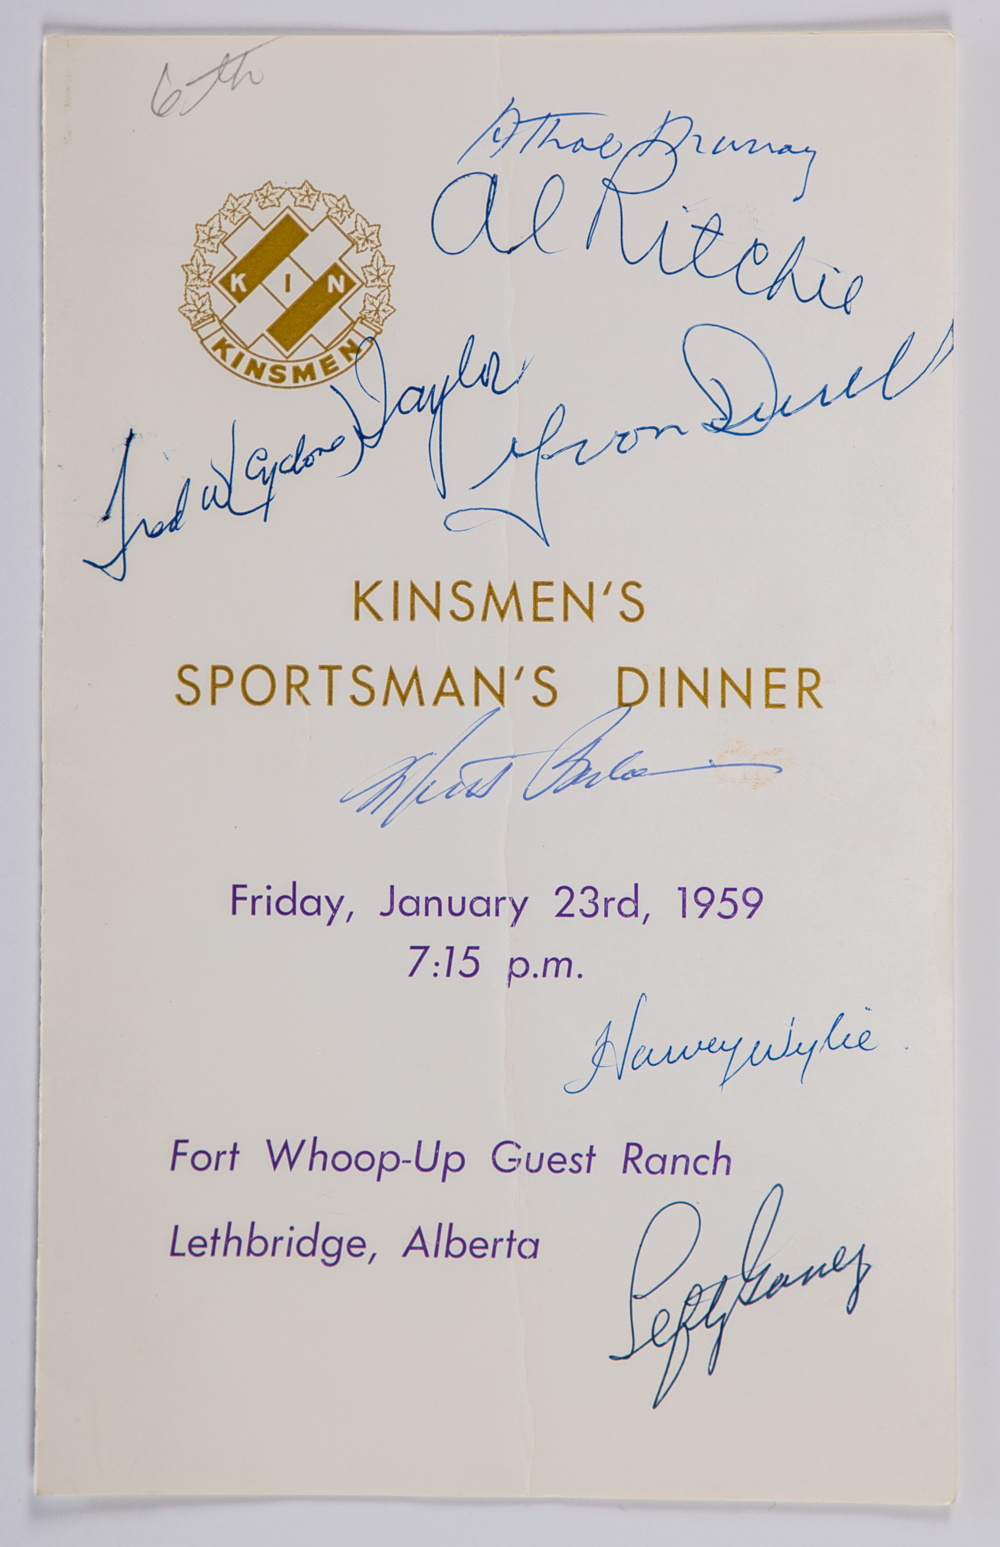 6th
Athol Murray
Al Ritchie
K I N
KINSMEN
Fred W (Cyclone) Taylor
Yvon Durell
KINSMEN'S
SPORTSMAN'S DINNER
Friday, January 23rd, 1959
7:15 p.m.
Harvey Wylie
Fort Whoop-Up Guest Ranch
Lethbridge, Alberta
Lefty